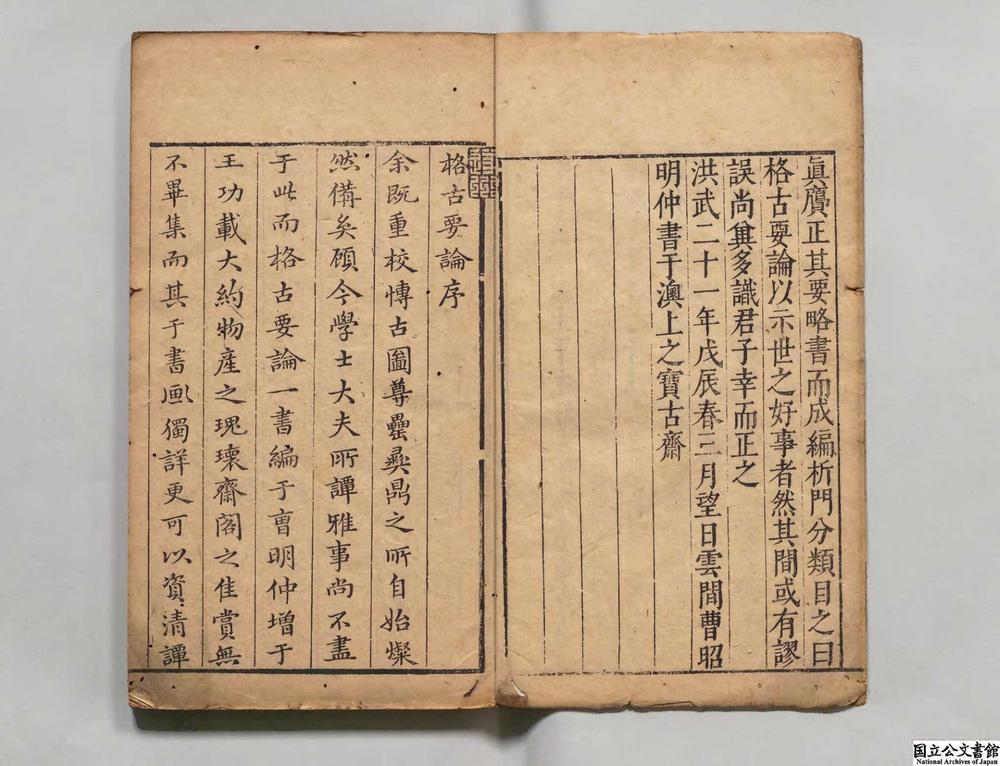 眞贗正其要略書而成編析門分類目之曰
格古要論以示世之好事者然其間或有謬
誤尚兾多識君子幸而正之
洪武二十一年戊辰春三月望日雲間曹昭
明仲書于澳上之寶古齋
格古要論序
余既重校愽古圖尊罍彞鼎之所自始燦
然備矣顧今學士大夫所譚雅事尚不盡
于此而格古要論一書編于曺明仲增于
王功載大約物產之瑰瓌齋閣之佳賞無
不畢集而其于書画獨詳更可以資清譚
国立公文書館
National Archives of Japan